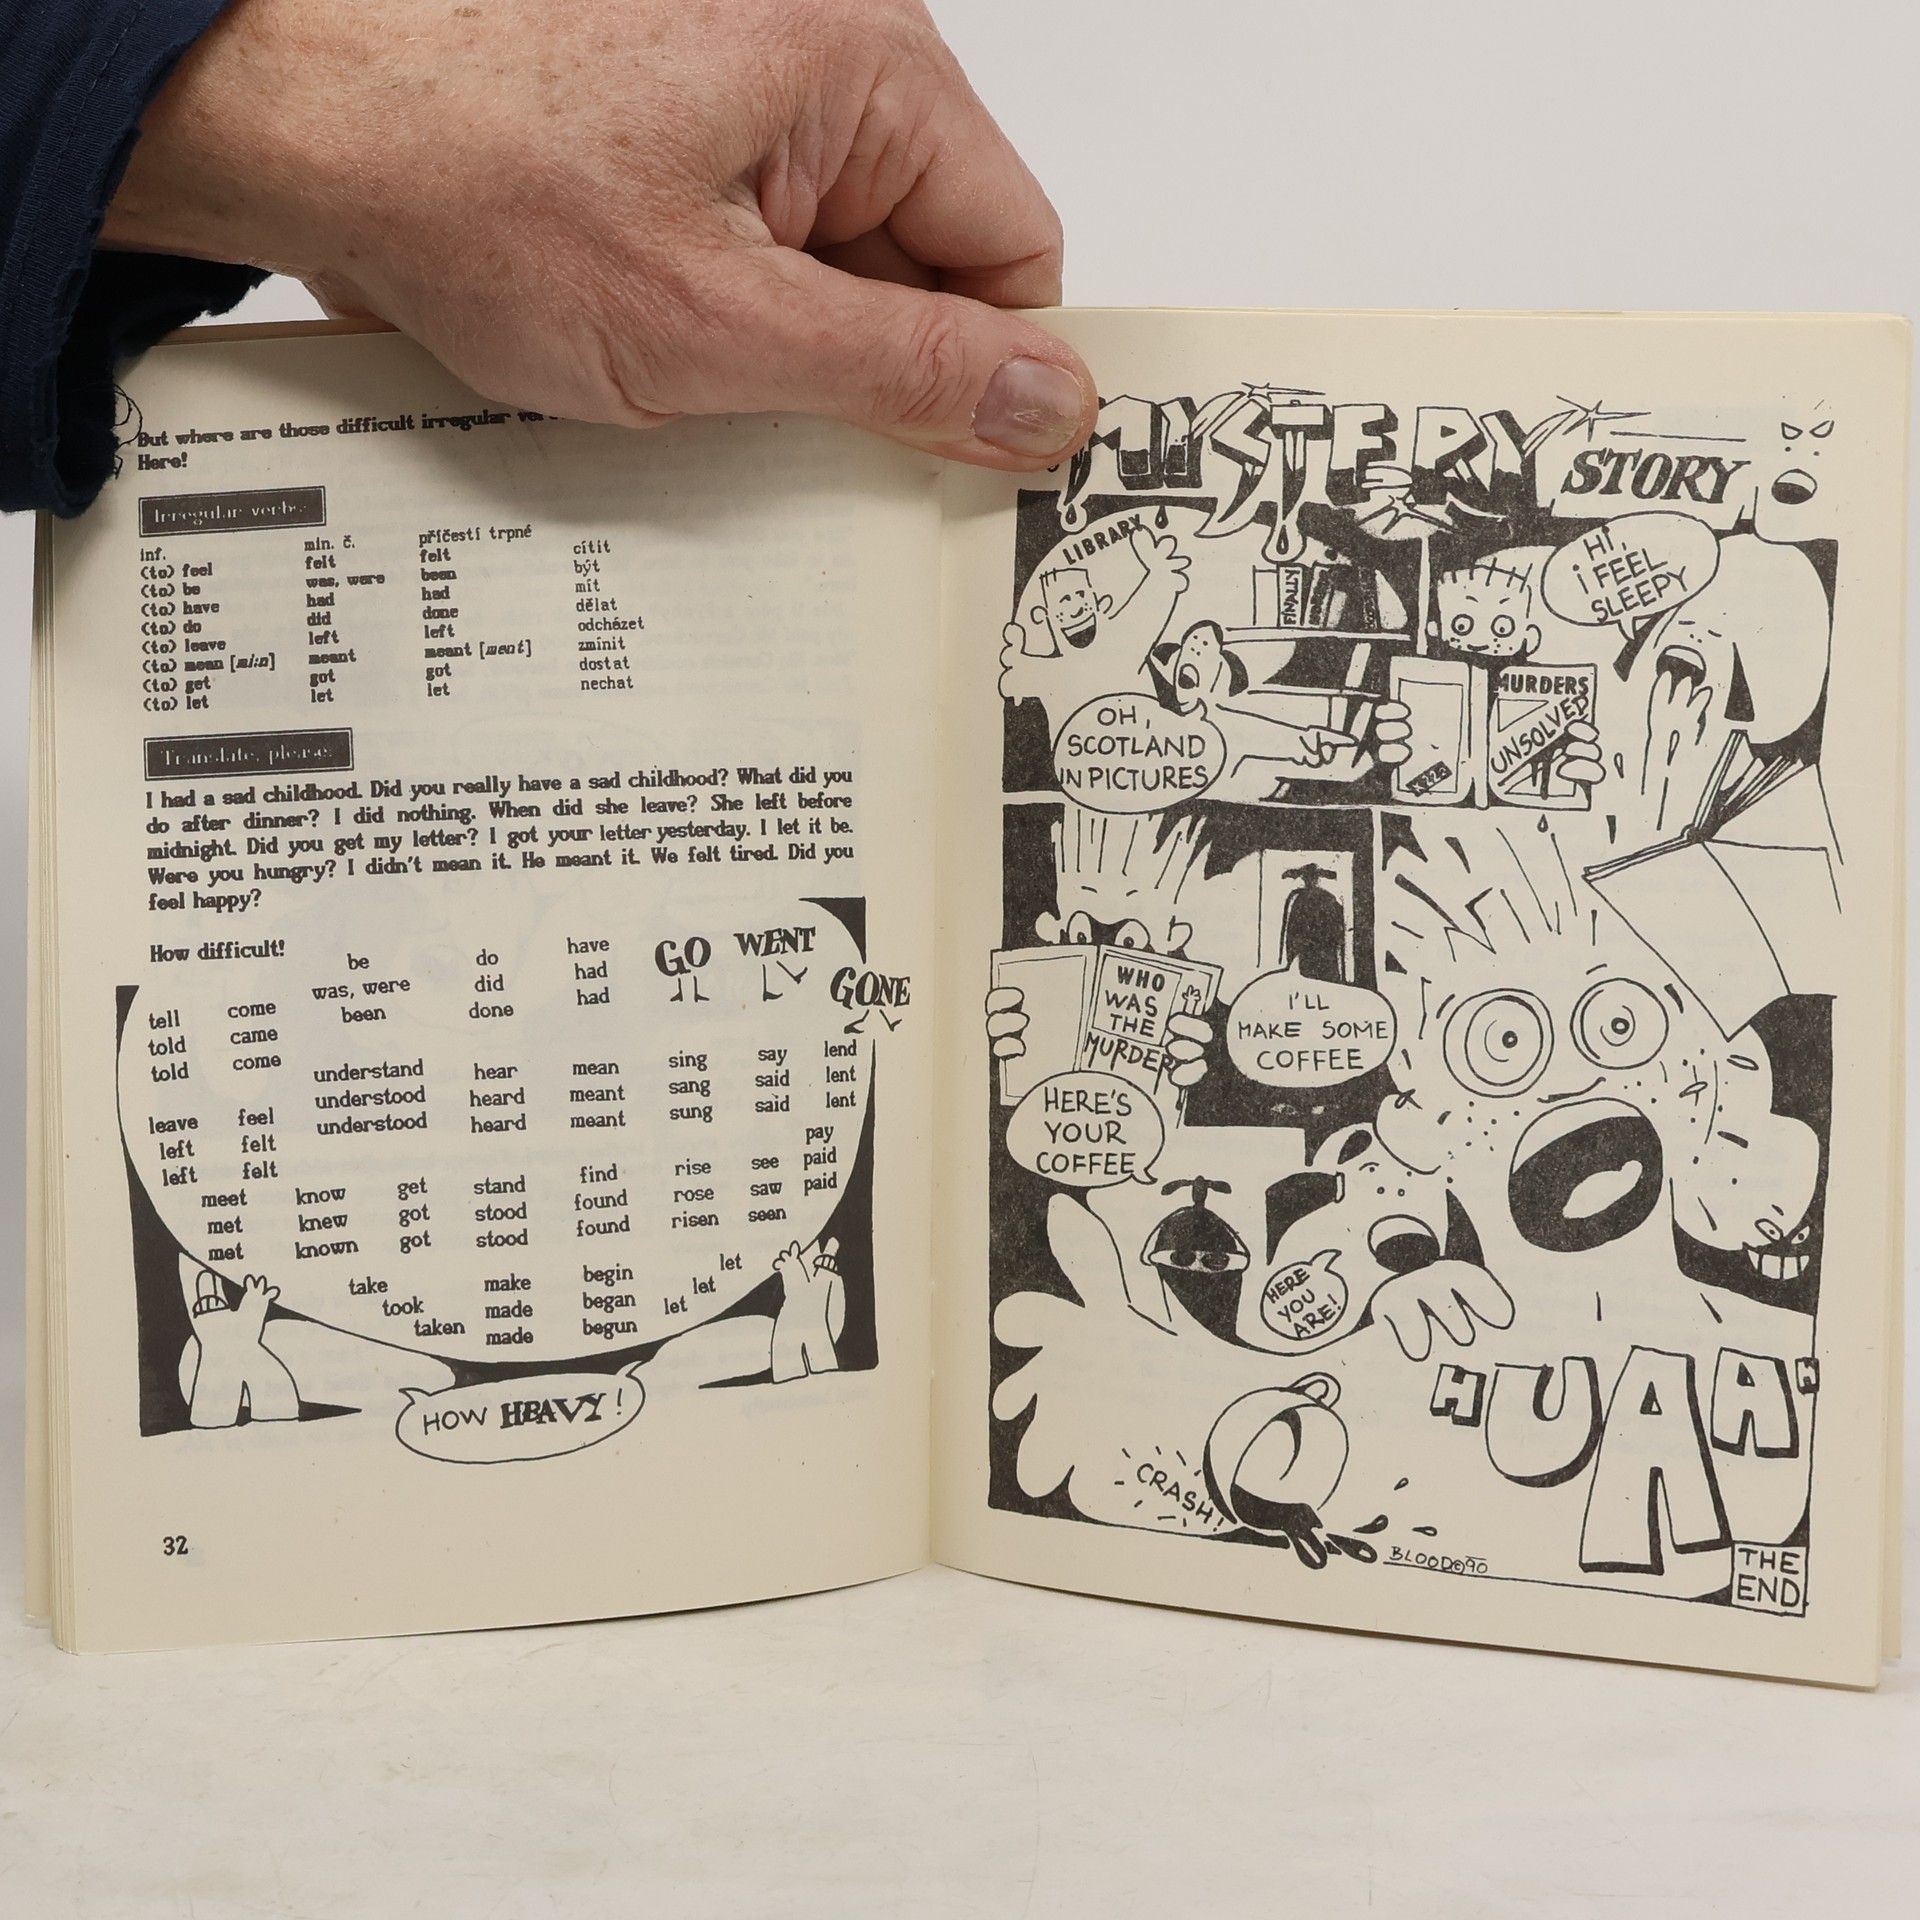 But where are those difficult irregular
Here!
Irregular verbs:
inf. min. č. příčestí trpné
(to) feel felt felt cítit
(to) be was, were been být
(to) have had had mít
(to) do did done dělat
(to) leave left left odcházet
(to) mean [mi:n] meant meant [ment] zmínit
(to) get got got dostat
(to) let let let nechat
Translate, please:
I had a sad childhood. Did you really have a sad childhood? What did you
do after dinner? I did nothing. When did she leave? She left before
midnight. Did you get my letter? I got your letter yesterday. I let it be.
Were you hungry? I didn't mean it. He meant it. We felt tired. Did you
feel happy?
How difficult!
be do have GO WENT GONE
was, were did had
been done had
tell come
told came
told come
understand hear mean sing say lend
understood heard meant sang said lent
understood heard meant sung said lent
leave feel
left felt
left felt
pay
paid
paid
meet know get stand find rise see
met knew got stood found rose saw
met known got stood found risen seen
take make begin let
took made began let
taken made begun let
HOW HEAVY!
32
MYSTERY
STORY
LIBRARY
FINALLY
HI,
I FEEL
SLEEPY
OH,
SCOTLAND
IN PICTURES
MURDERS
UNSOLVED
WHO
WAS
THE
MURDER
I'LL
MAKE SOME
COFFEE
HERE'S
YOUR
COFFEE
HERE
YOU
ARE!
HUAAH
CRASH!
BLOOD©90
THE
END